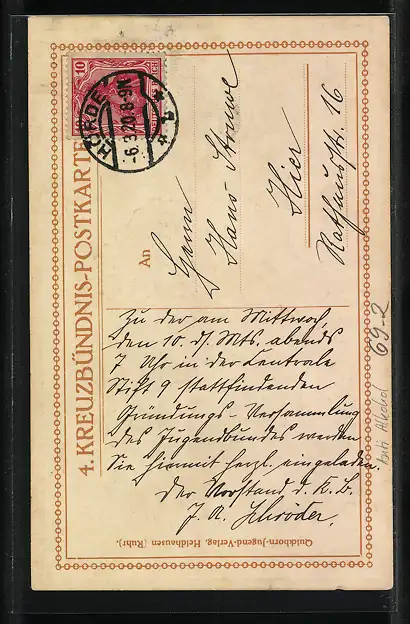 4. KREUZBÜNDNIS-POSTKARTE
10
HÖRDE
-6.3.20.8-9N.
An
Herrn
Hans Struwe
Hier
Rathausstr. 16
Zu der am Mittwoch,
den 10. ds. Mts. abends
7 Uhr in der Centrale
Stift 9 stattfindenden
Gründungs-Versammlung
des Jugendbundes werden
Sie hiermit herzl. eingeladen.
Der Vorstand d. K. B.
J. A. Schröder
Quickborn-Jugend-Verlag, Heidhausen (Ruhr).
69-2
Alkohol